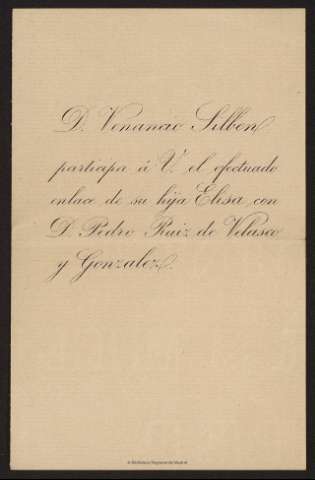 D. Venancio Silben
participa á V. el efectuado
enlace de su hija Elisa con
D. Pedro Ruiz de Velasco
y Gonzalez.
© Biblioteca Regional de Madrid